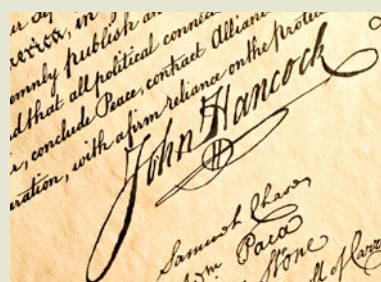 America, in
emnly publish an
d that all political connec
r, conclude Peace, contract Allianc
eration, with a firm reliance on the protec
John Hancock
Samuel Chase
Wm Paca
Stone
ll of Carr